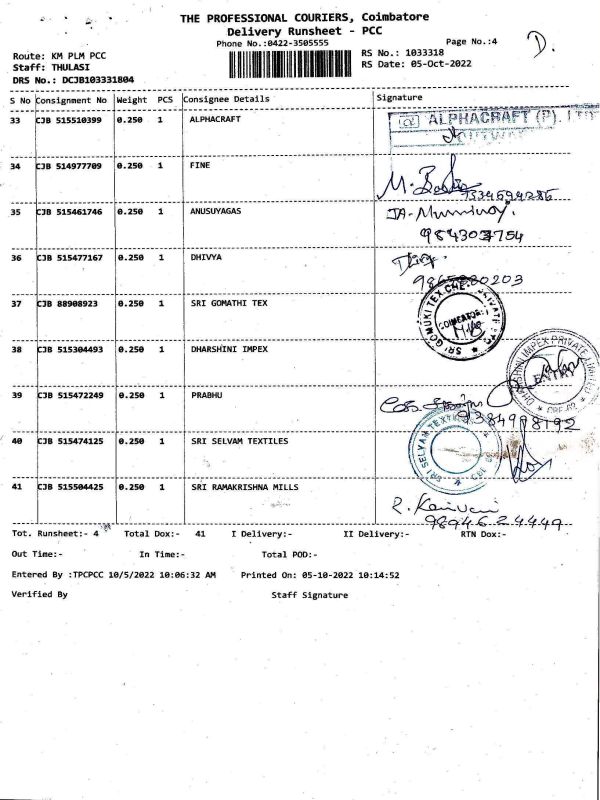 THE PROFESSIONAL COURIERS, Coimbatore
Delivery Runsheet - PCC
Phone No.:0422-3505555
Page No.:4
D.
Route: KM PLM PCC
RS No.: 1033318
Staff: THULASI
RS Date: 05-Oct-2022
DRS No.: DCJB103331804
S No Consignment No Weight PCS Consignee Details Signature
33 CJB 515510399 0.250 1 ALPHACRAFT
ALPHACRAFT (P). LTD
34 CJB 514977709 0.250 1 FINE
35 CJB 515461746 0.250 1 ANUSUYAGAS
36 CJB 515477167 0.250 1 DHIVYA
37 CJB 88908923 0.250 1 SRI GOMATHI TEX
SRI GOMUKI TEX CHE. PRIVATE
38 CJB 515304493 0.250 1 DHARSHINI IMPEX
DHARSHINI IMPEX PRIVATE LIMITED
39 CJB 515472249 0.250 1 PRABHU
40 CJB 515474125 0.250 1 SRI SELVAM TEXTILES
SRI SELVAM
41 CJB 515504425 0.250 1 SRI RAMAKRISHNA MILLS
98946 24449
Tot. Runsheet:- 4 Total Dox:- 41 I Delivery:- II Delivery:- RTN Dox:-
Out Time:- In Time:- Total POD:-
Entered By :TPCPCC 10/5/2022 10:06:32 AM Printed On: 05-10-2022 10:14:52
Verified By Staff Signature